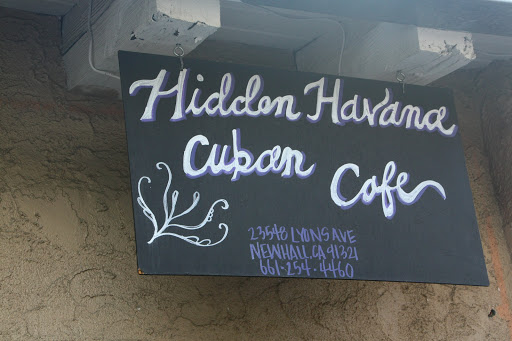 Hidden Havana
Cuban Cafe
23548 LYONS AVE
NEWHALL, CA 91321
661-254-4460